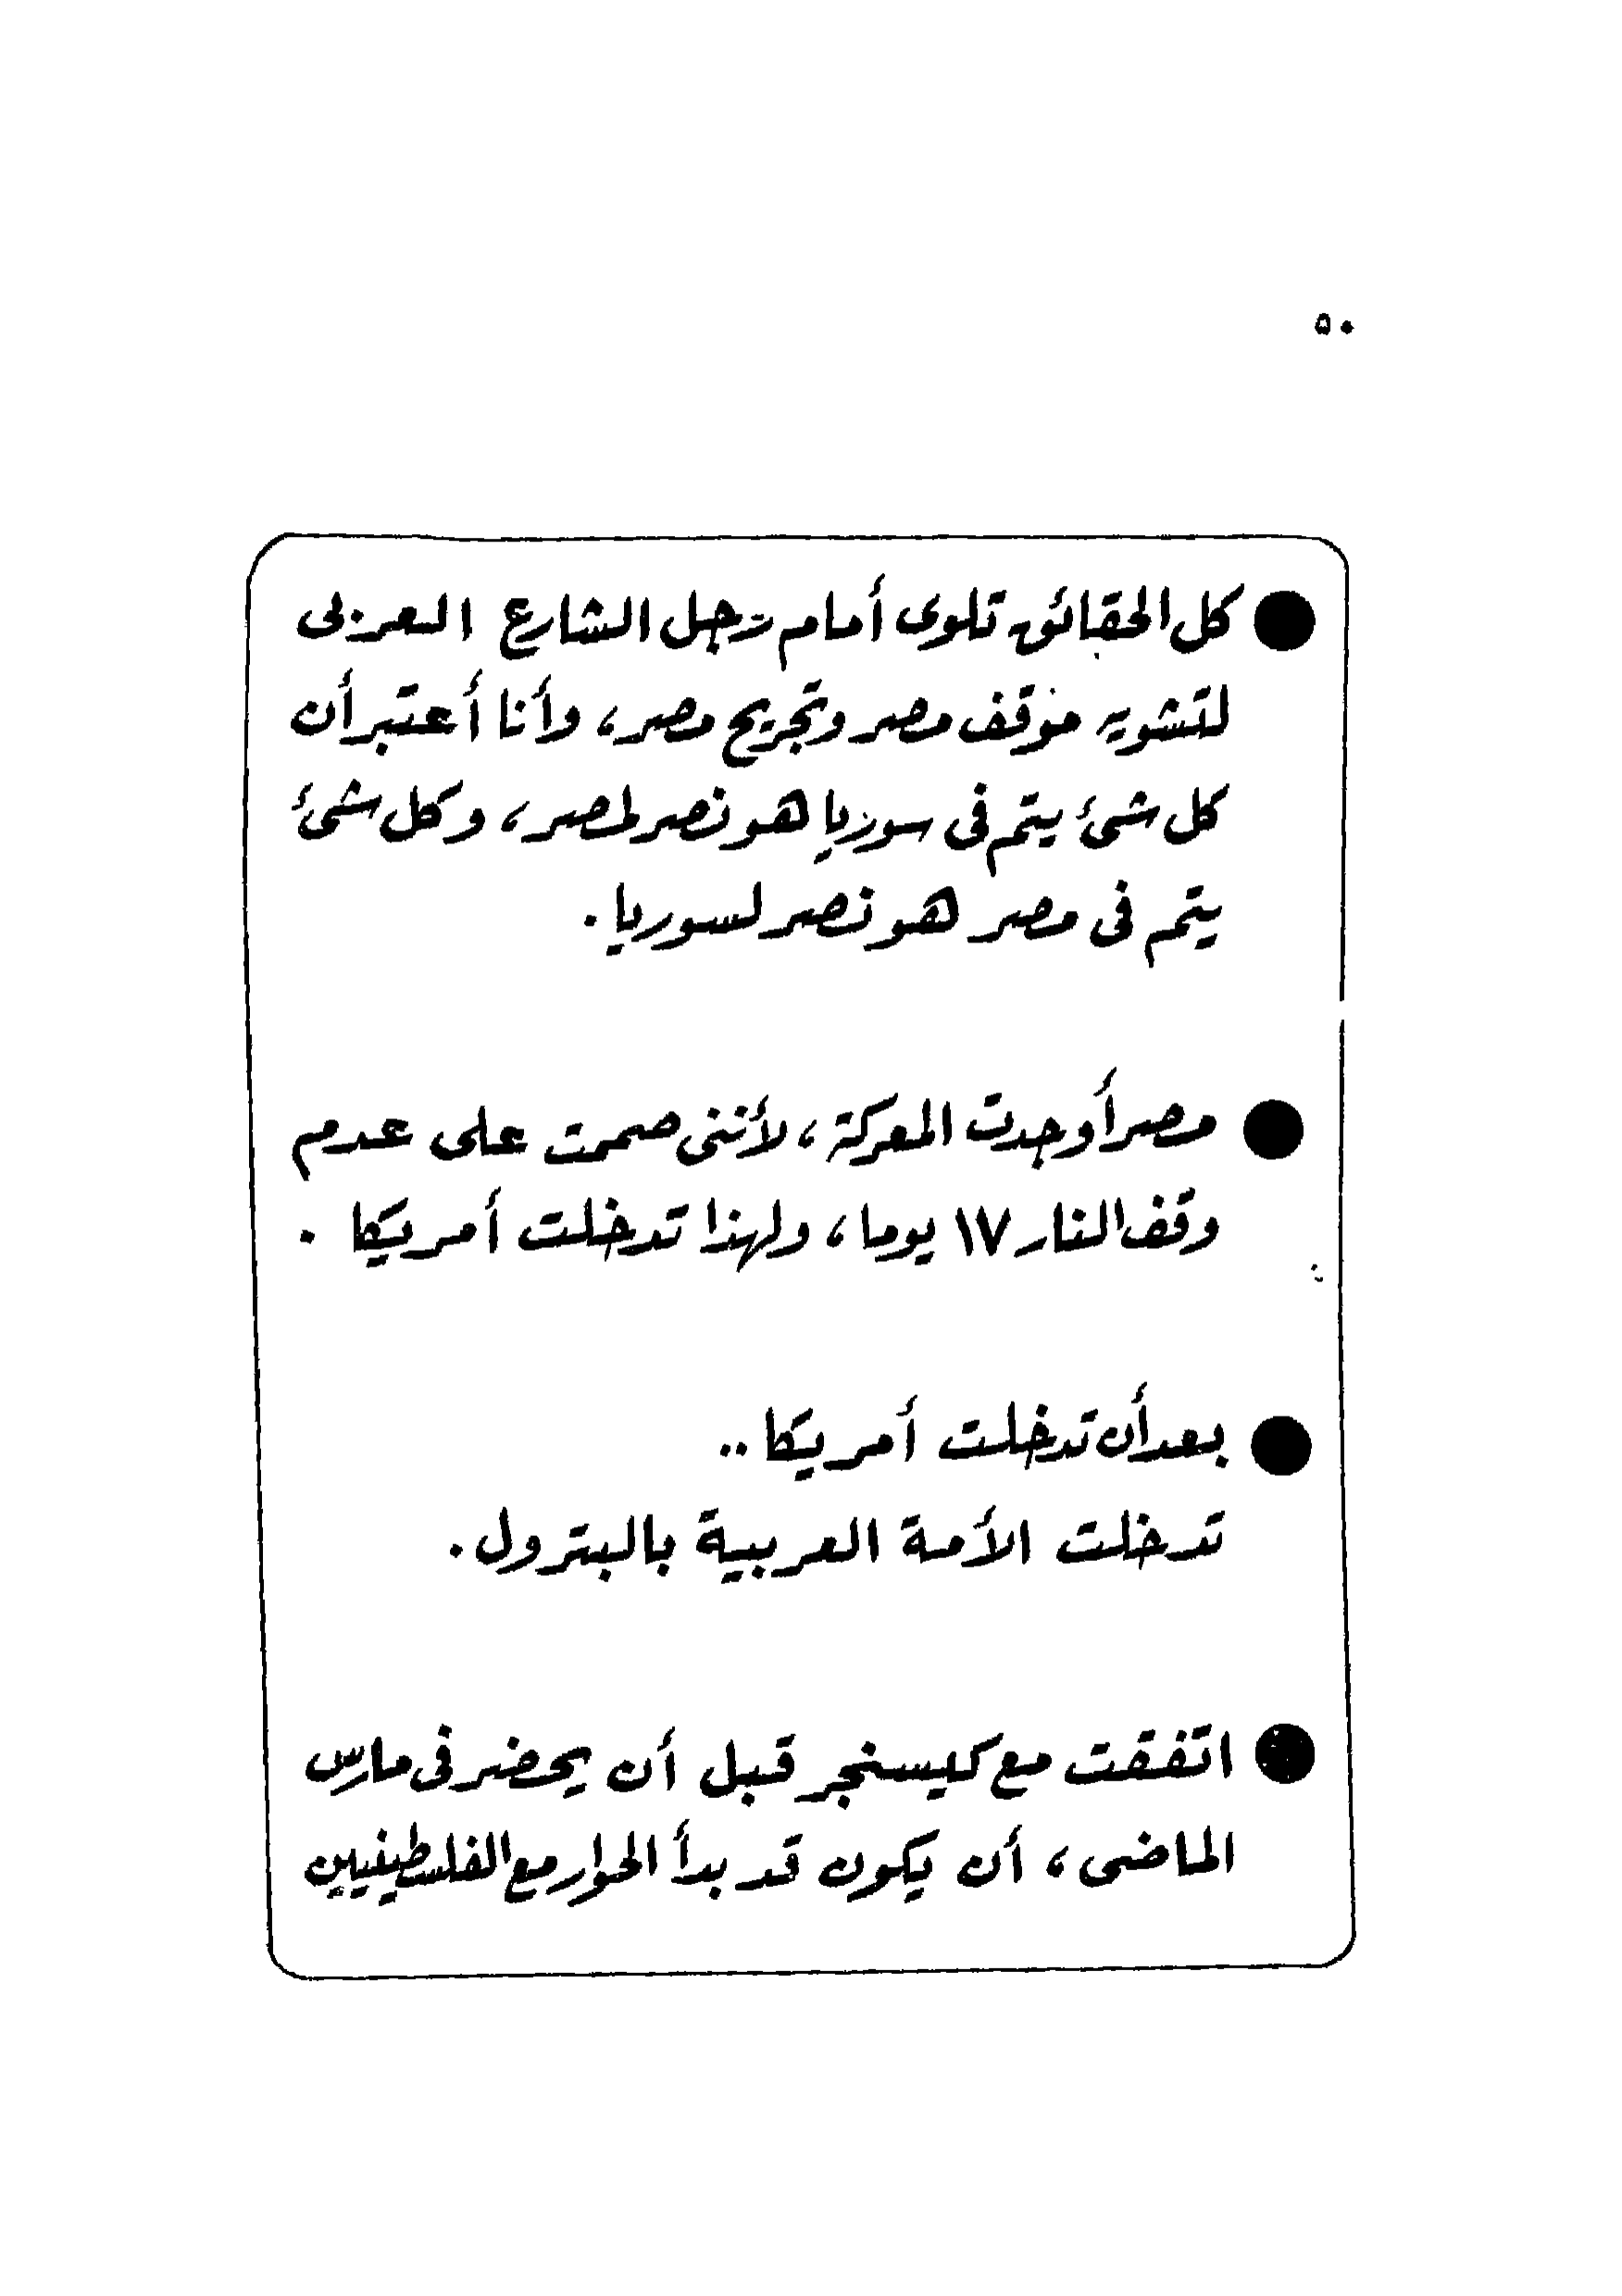 ٥٠
● كل الحقائق تلوى أمام رجل الشارع العربى
لتشويه موقف مصر وتجريح مصر، وأنا أعتبر أن
كل شئ يتم فى سوريا هو نصر لمصر، وكل شئ
يتم فى مصر هو نصر لسوريا.
● مصر أوجدت المعركة، لأننى صممت على عدم
وقف النار ١٧ يوما، ولهذا تدخلت أمريكا.
● بعد أن تدخلت أمريكا..
تدخلت الأمة العربية بالبترول.
● اتفقت مع كيسنجر قبل أن يحضر فى مارس
الماضى، أن يكون قد بدأ الحوار مع الفلسطينيين